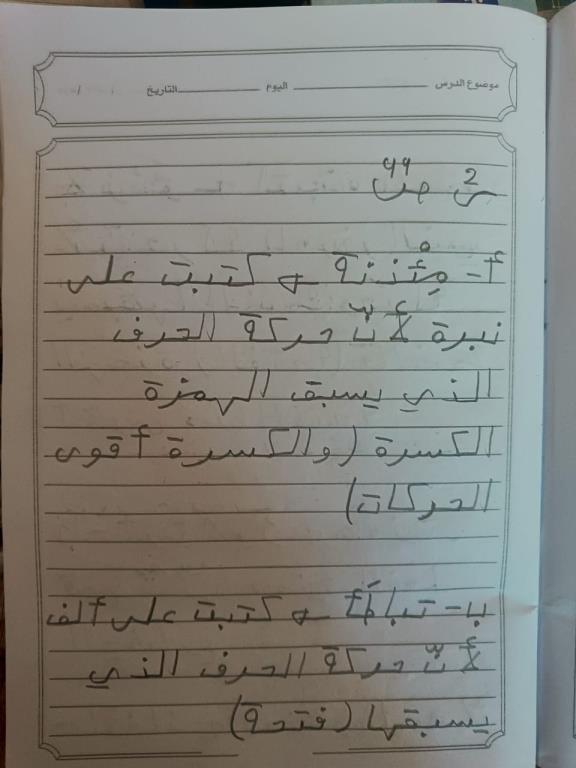 موضوع الدرس اليوم التاريخ / /
س 2 ص 66
أ- مِئْذنة → كتبت على
نبرة لأنّ حركة الحرف
الذي يسبق الهمزة
الكسرة (والكسرة أقوى
الحركات)
ب- تباطَأ → كتبت على ألف
لأنّ حركة الحرف الذي
يسبقها (فتحة)